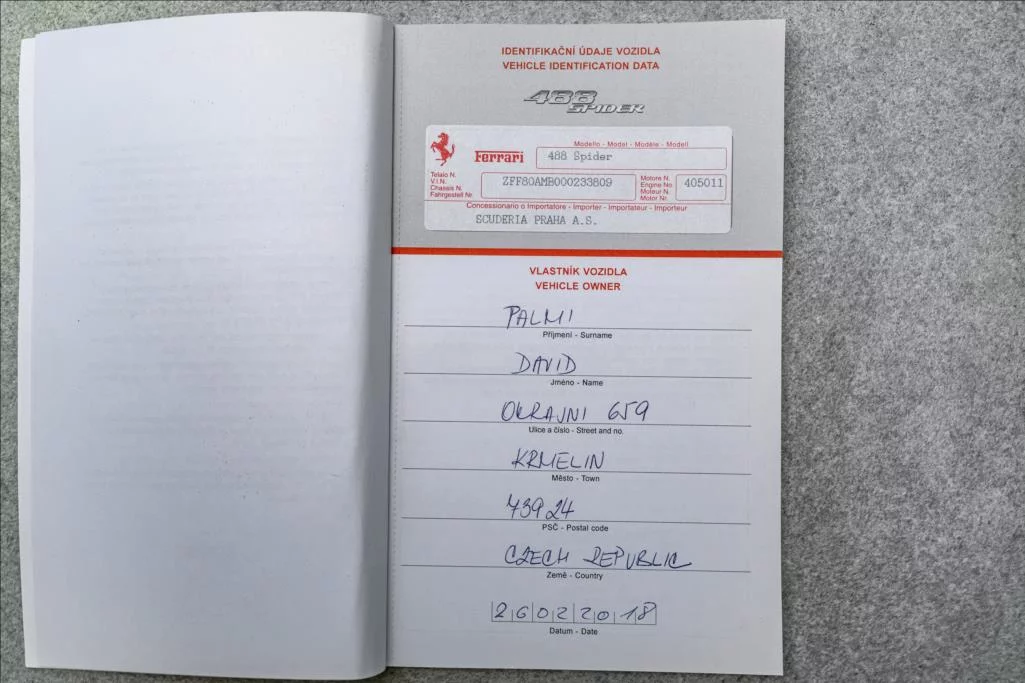 IDENTIFIKAČNÍ ÚDAJE VOZIDLA
VEHICLE IDENTIFICATION DATA
488
SPIDER
Modello - Model - Modèle - Modell
Ferrari
488 Spider
Telaio N.
V.I.N.
Chassis N.
Fahrgestell Nr.
ZFF80AMB000233809
Motore N.
Engine No
Moteur N.
Motor Nr.
405011
Concessionario o Importatore - Importer - Importateur - Importeur
SCUDERIA PRAHA A.S.
VLASTNÍK VOZIDLA
VEHICLE OWNER
PALMI
Příjmení - Surname
DAVID
Jméno - Name
OKRAJNI 659
Ulice a číslo - Street and no.
KRMELIN
Město - Town
739 24
PSČ - Postal code
CZECH REPUBLIC
Země - Country
26022018
Datum - Date